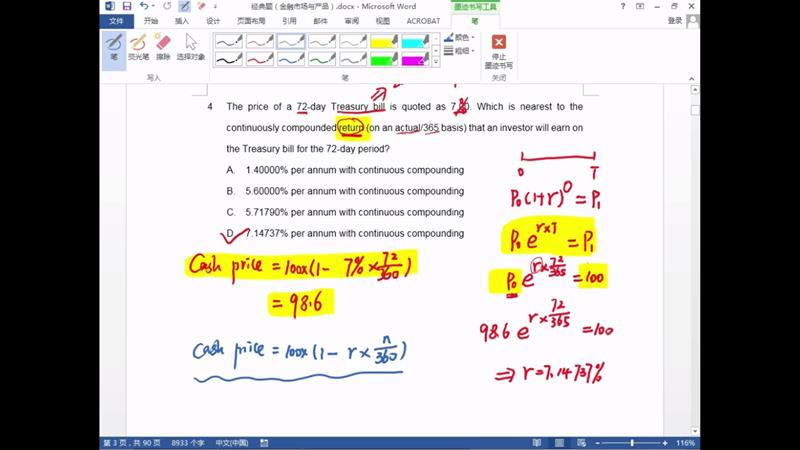 经典题(金融市场与产品).docx - Microsoft Word
墨迹书写工具
文件 开始 插入 设计 页面布局 引用 邮件 审阅 视图 ACROBAT 笔 登录
笔 荧光笔 橡皮擦 选择对象
颜色
粗细
停止墨迹书写
写入 笔
4 The price of a 72-day Treasury bill is quoted as 7.00. Which is nearest to the
continuously compounded return (on an actual/365 basis) that an investor will earn on
the Treasury bill for the 72-day period?
A. 1.40000% per annum with continuous compounding
B. 5.60000% per annum with continuous compounding
C. 5.71790% per annum with continuous compounding
D. 7.14737% per annum with continuous compounding
Cash price = 100x(1- 7% × 72/360)
= 98.6
Cash price = 100x(1- r × n/360)
0 T
P₀(1+r)⁰ = P₁
P₀ e^(r×T) = P₁
P₀ e^(r×72/365) = 100
98.6 e^(r×72/365) = 100
⇒ r=7.14737%
第 3 页,共 90 页 8933 个字 中文(中国) 116%